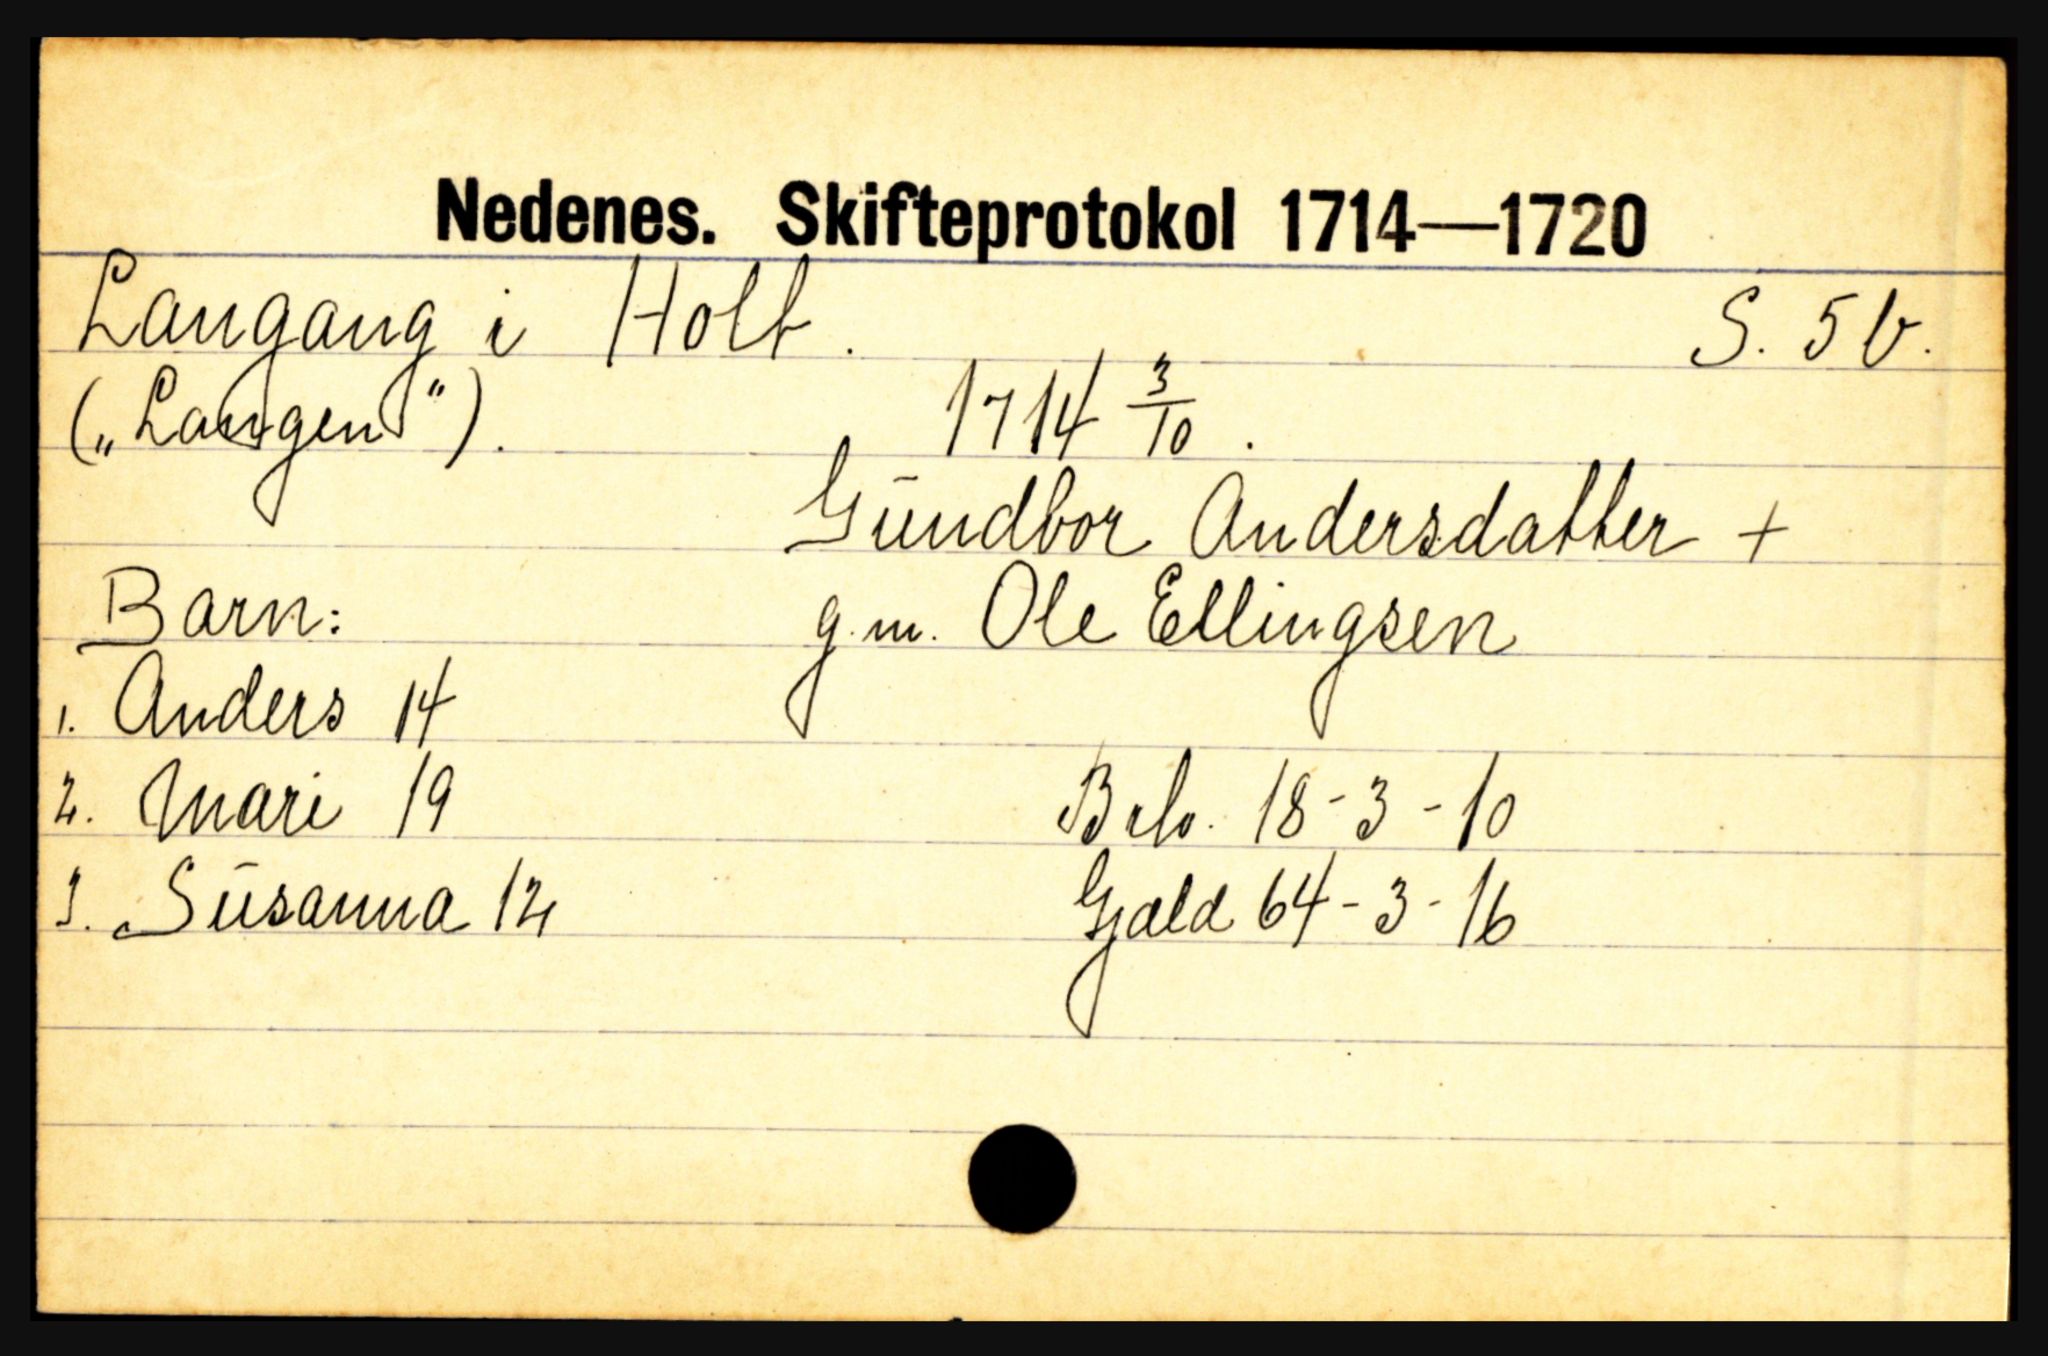 Nedenes. Skifteprotokol 1714—1720
Langang i Holt. S. 5b.
(„Langen"). 1714 3/10.
Gundbor Andersdatter +
Barn: g.m. Ole Ellingsen
1. Anders 14
2. Mari 19 Brb. 18-3-10
3. Susanna 12 Gjæld 64-3-16